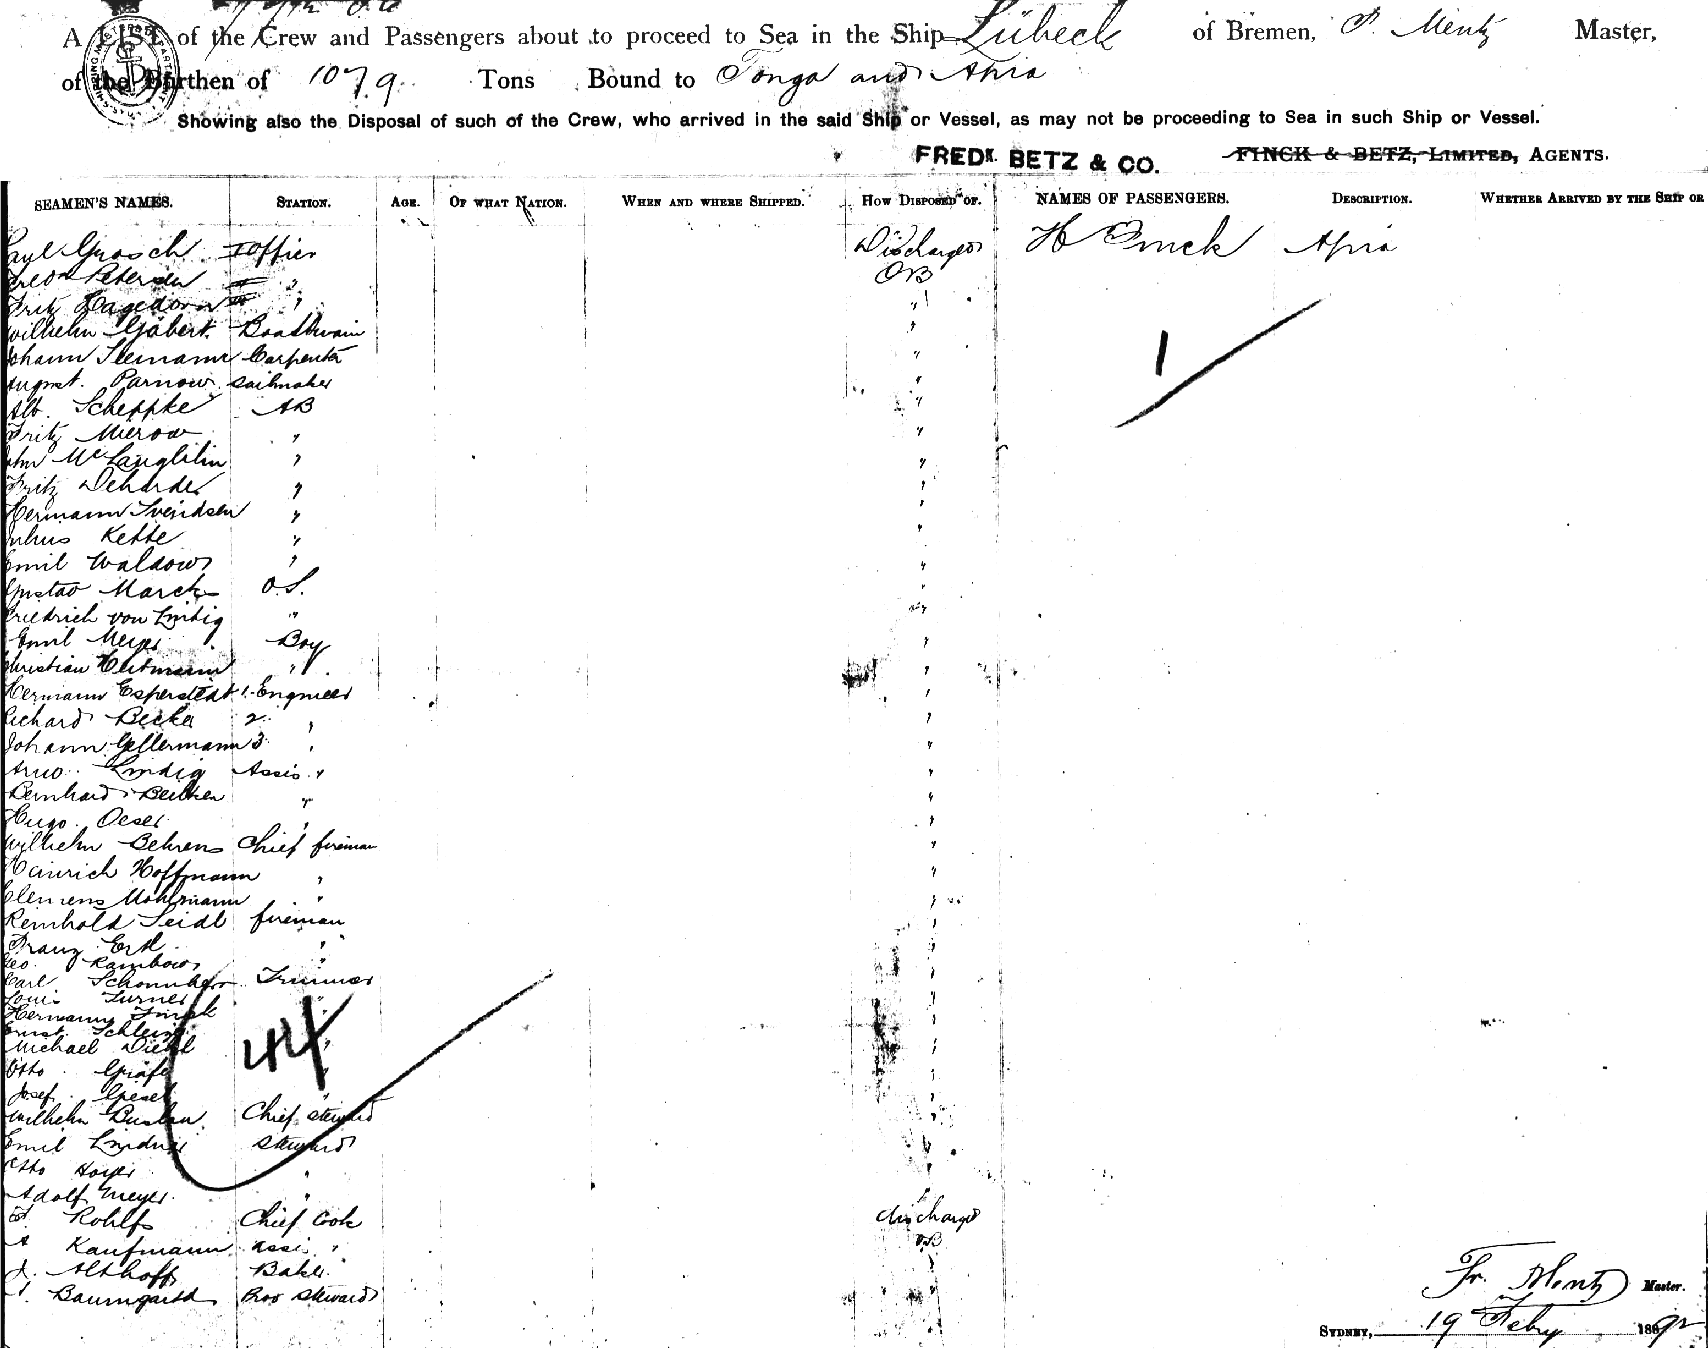 A LIST of the Crew and Passengers about to proceed to Sea in the Ship Lübeck of Bremen, P. Mentz Master,
of the Burthen of 1079 Tons Bound to Tonga and Apia
Showing also the Disposal of such of the Crew, who arrived in the said Ship or Vessel, as may not be proceeding to Sea in such Ship or Vessel.
FREDK. BETZ & CO. FINCK & BETZ, LIMITED, AGENTS.
SEAMEN'S NAMES. STATION. AGE. OF WHAT NATION. WHEN AND WHERE SHIPPED. HOW DISPOSED OF. NAMES OF PASSENGERS. DESCRIPTION. WHETHER ARRIVED BY THE SHIP OR
Grosch I Officer Discharged H Apia
Petersen II " OB
Fritz Hagedorn III " "
Wilhelm Gäbert Boatswain "
Johann Seemann Carpenter "
August Parnow Sailmaker "
Alb. Scheppke AB "
Fritz Mierow " "
John McLaughlin " "
Fritz Deharde " "
Hermann Svendsen " "
Julius Kette " "
Emil Waldow " "
Gustav Marck O.S. "
Friedrich von Lindig " "
Emil Meyer Boy "
Christian Heitmann " "
Hermann Esperstedt 1. Engineer "
Richard Becker 2. " "
Johann Gellermann 3 " "
Arno Lindig Assis. " "
Bernhard " "
Hugo Oeser " "
Wilhelm Behrens Chief fireman "
Heinrich Hoffmann " "
Clemens Mohrmann " "
Reinhold Seidl fireman "
Franz " "
Geo. Rambow " "
Carl Trimmer "
Louis Turner
Hermann
Ernst
Michael Diehl
Otto Gräfe
Josef
Wilhelm Chief steward
Emil Lindner Steward
Otto Hoyer "
Adolf Meyer "
Rohlfs Chief Cook discharged
Kaufmann assis. " OB
Althoff Baker
Baumgartd Prov Steward
1
44
Fr. Mentz Master.
SYDNEY, 19 Feby 1892